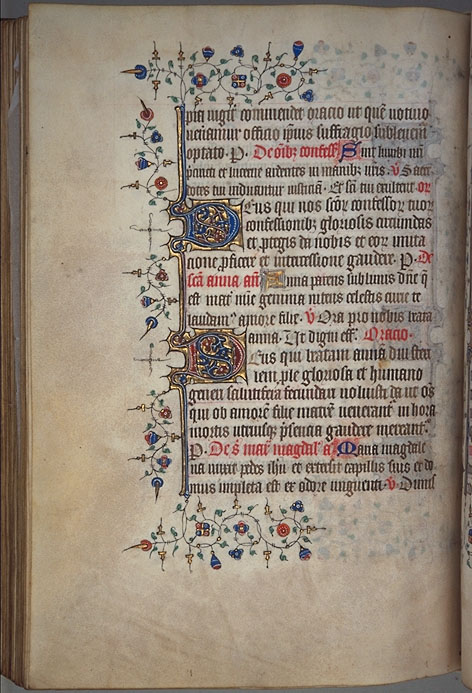 nr̃a iugit̉ commendet oracio ut quẽ votiuo
veneramur officio ip̃ius suffragio subleuem̃
optato. P. De oĩb; confess̃. Sint lumbi nr̃i
p̃cincti et lucerne ardentes in manib; nr̃is. V Sacer
dotes tui induantur iusticiã. Et sc̃i tui exultent. or
Deus qui nos sc̃or̃ confessor̃ tuor̃
confessionib; gloriosis circumdas
et p̃tegis da nobis et eor̃ imita
cione p̃ficere et intercessione gaudere. P. De
sc̃a anna añ Anna parens sublimis dñe q̃
est mat̃ nr̃e gemma nitens celestis curie te
laudam᷒ amore filie. V Ora pro nobis beata
anna. Ut digni eff̃. Oracio.
Deus qui beatam annã diu steri
lem p̃le gloriosa et humano
generi salutifera fecundari voluisti da ut oẽs
qui ob amorẽ filie matrẽ venerant̃ in hora
mortis utriusq; p̃sencia gaudere mereant̃.
P. De s̃ mar̃ magdal̃ a᷒ Maria magdale
na unxit pedes ih̃u et extersit capillis suis et do
mus impleta est ex odore unguenti. V Dimis